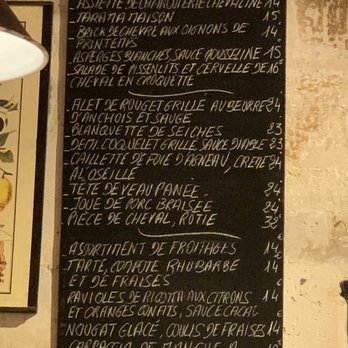 ASSIETTE DE CHARCUTERIE CHEVALINE 14
TARAMA MAISON 15
BRICK DE CHEVRE AUX OIGNONS DE 14
PRINTEMPS
ASPERGES BLANCHES, SAUCE MOUSSELINE 15
SALADE DE PISSENLITS ET CERVELLE DE 16€
CHEVAL EN CROQUETTE
FILET DE ROUGET GRILLÉ AU BEURRE 24
D'ANCHOIS ET SAUGE
BLANQUETTE DE SEICHES 23
DEMI COQUELET GRILLÉ, SAUCE DIABLE 23
CAILLETTE DE FOIE D'AGNEAU, CREME 24
A L'OSEILLE
TETE DE VEAU PANÉE 24
JOUE DE PORC BRAISÉE 24
PIECE DE CHEVAL, RÔTIE 32
€
ASSORTIMENT DE FROMAGES 14
TARTE, COMPOTE RHUBARBE 14
ET DE FRAISES
RAVIOLES DE RICOTTA AUX CITRONS 14
ET ORANGES CONFITS, SAUCE CACAO
NOUGAT GLACÉ, COULIS DE FRAISES 14
CARPACCIO DE